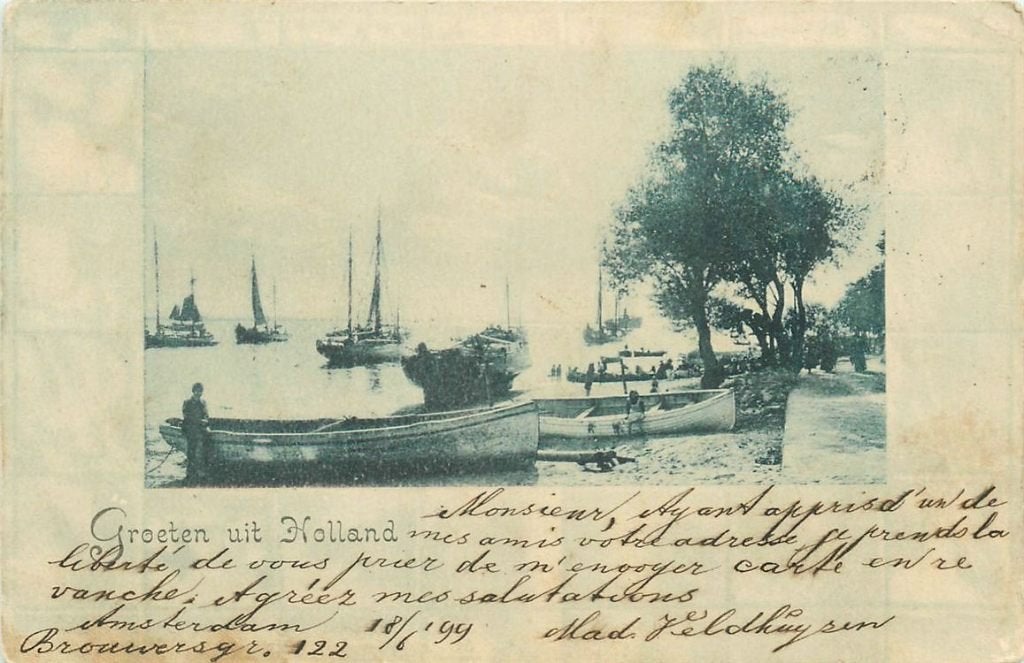 Groeten uit Holland
Monsieur, Ayant appris d'un de
mes amis votre adresse je prends la
liberté de vous prier de m'envoyer carte en re
vanche. Agréez mes salutations
Amsterdam 18/6 '99 Mad. Veldhuyzen
Brouwersgr. 122